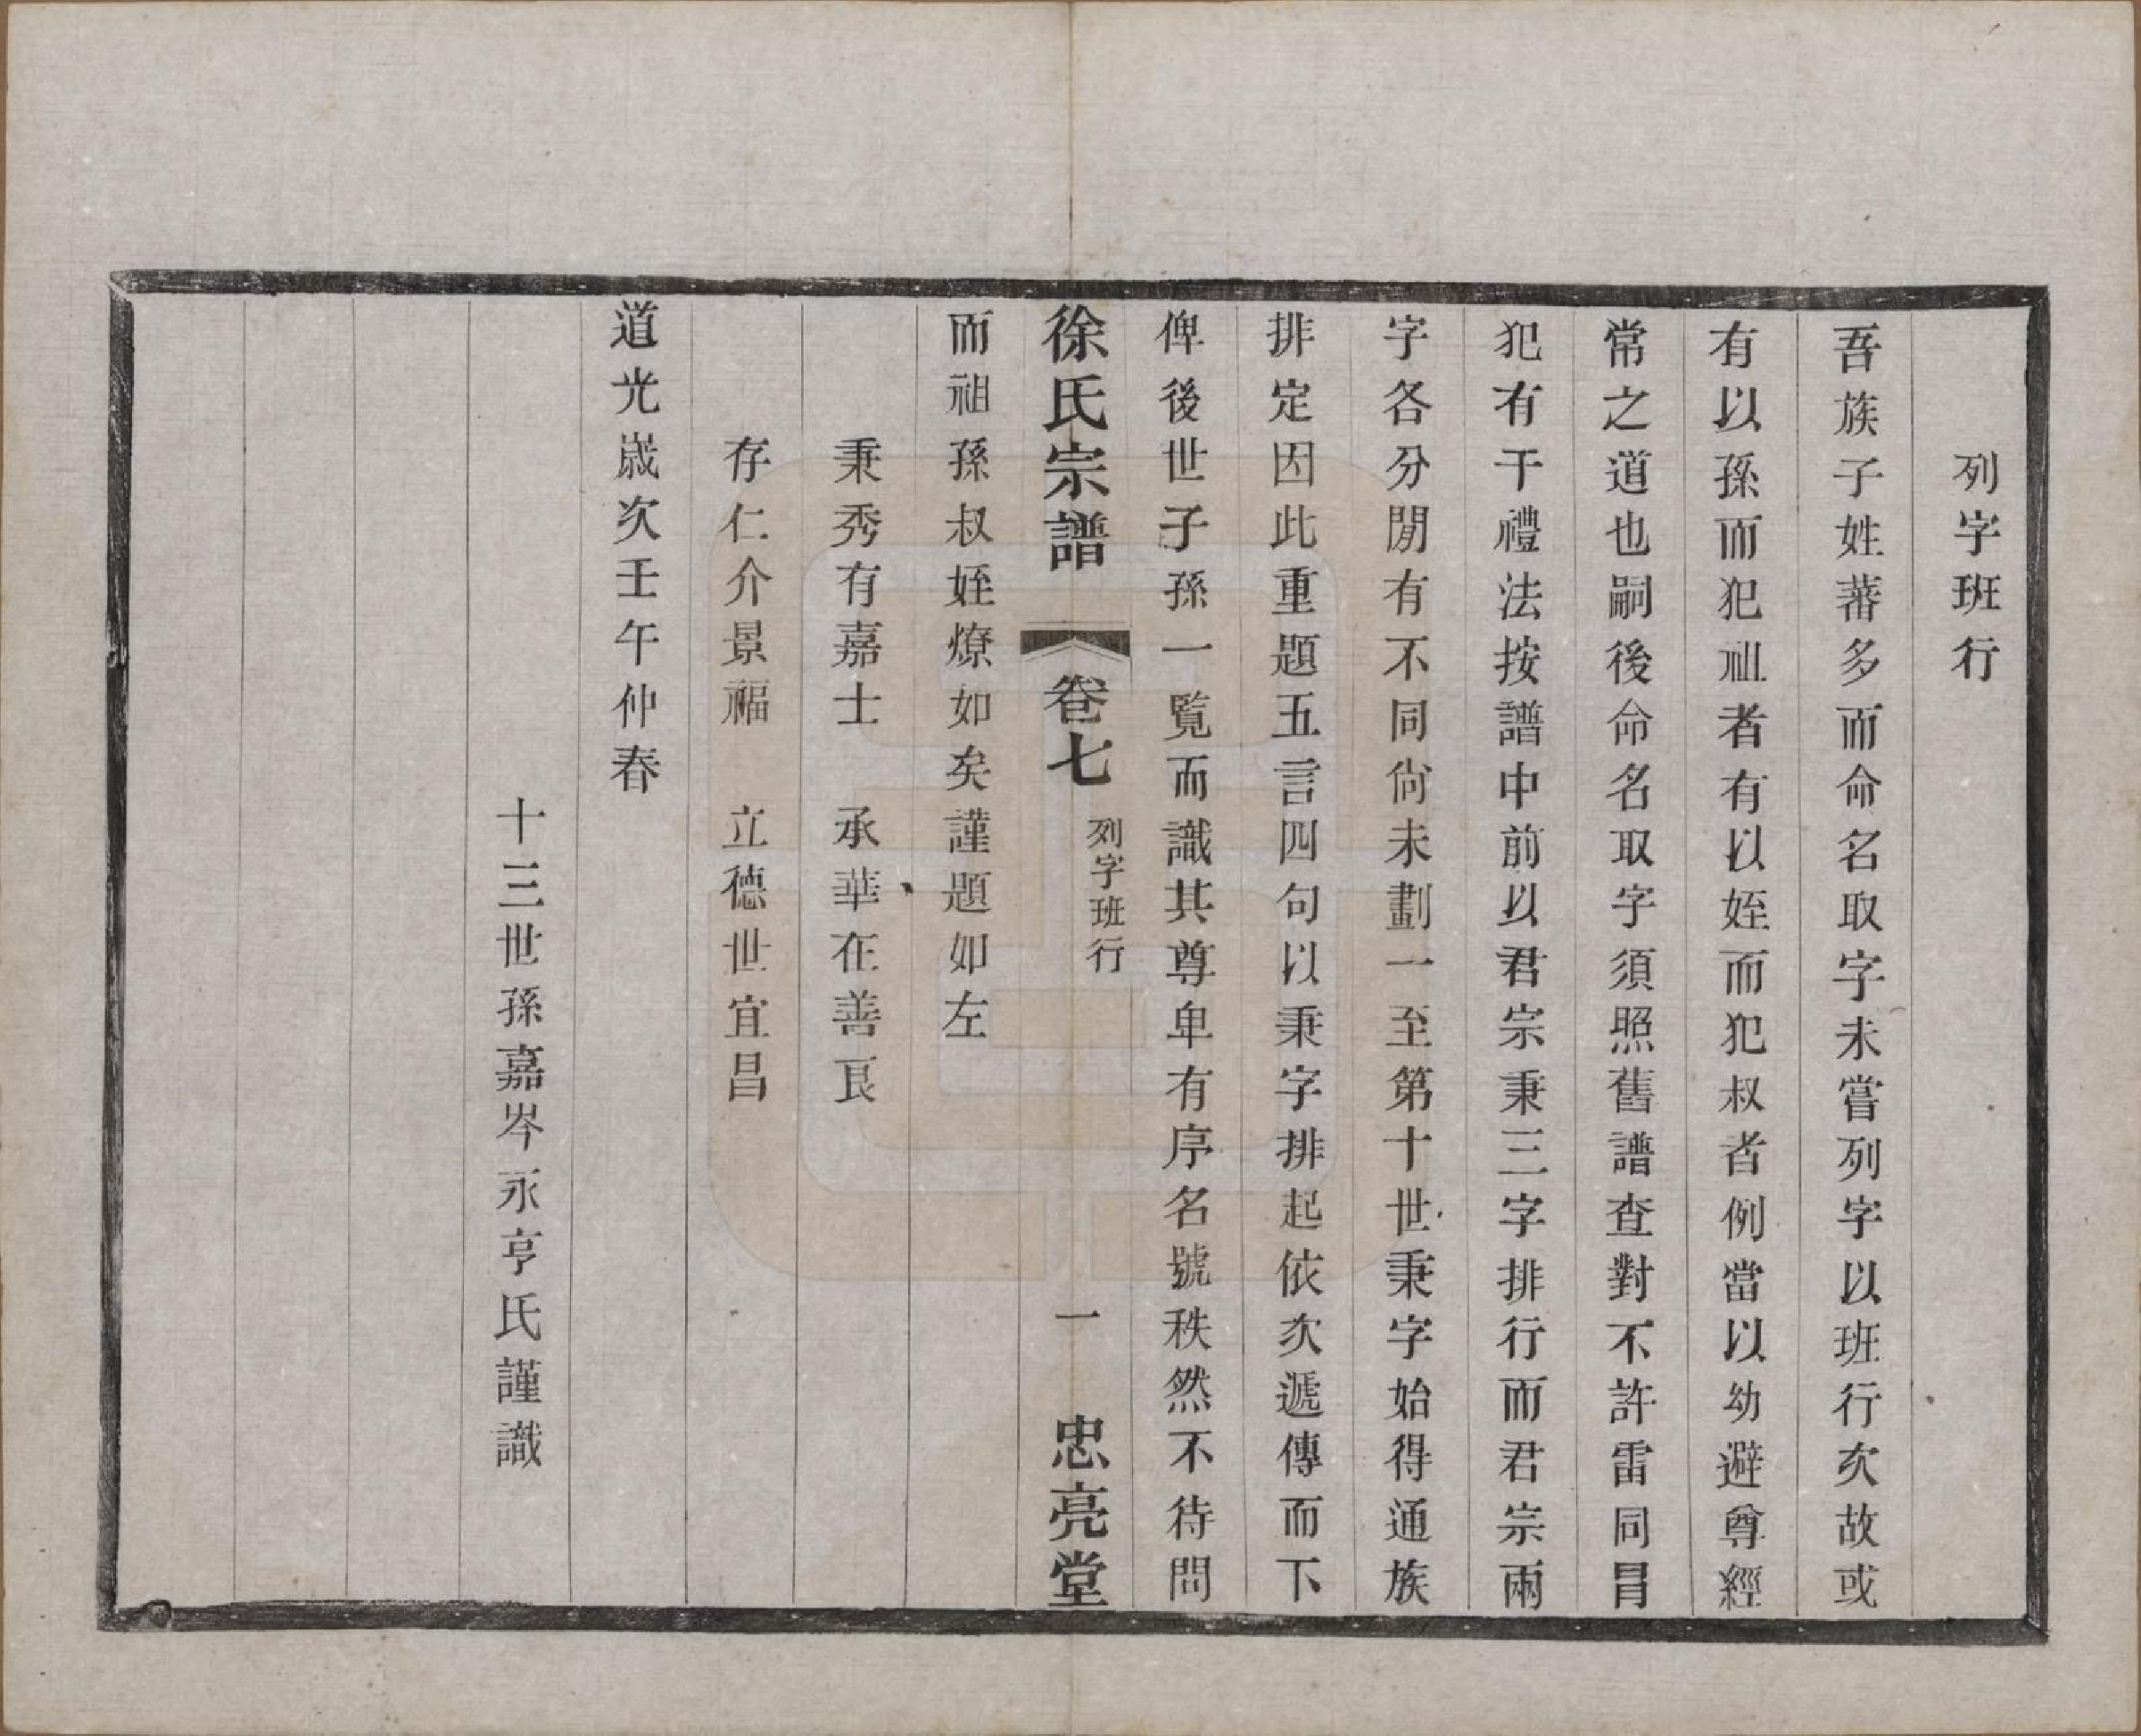 列字班行
吾族子姓蕃多而命名取字未嘗列字以班行次故或
有以孫而犯祖者有以姪而犯叔者例當以幼避尊經
常之道也嗣後命名取字須照舊譜查對不許雷同冒
犯有干禮法按譜中前以君宗秉三字排行而君宗兩
字各分閒有不同尙未劃一至第十世秉字始得通族
排定因此重題五言四句以秉字排起依次遞傳而下
俾後世子孫一覧而識其尊卑有序名號秩然不待問
徐氏宗譜 卷七 列字班行 一 忠亮堂
而祖孫叔姪燎如矣謹題如左
秉秀有嘉士 承華在善良
存仁介景福 立德世宜昌
道光嵗次壬午仲春
十三世孫嘉岑永亨氏謹識